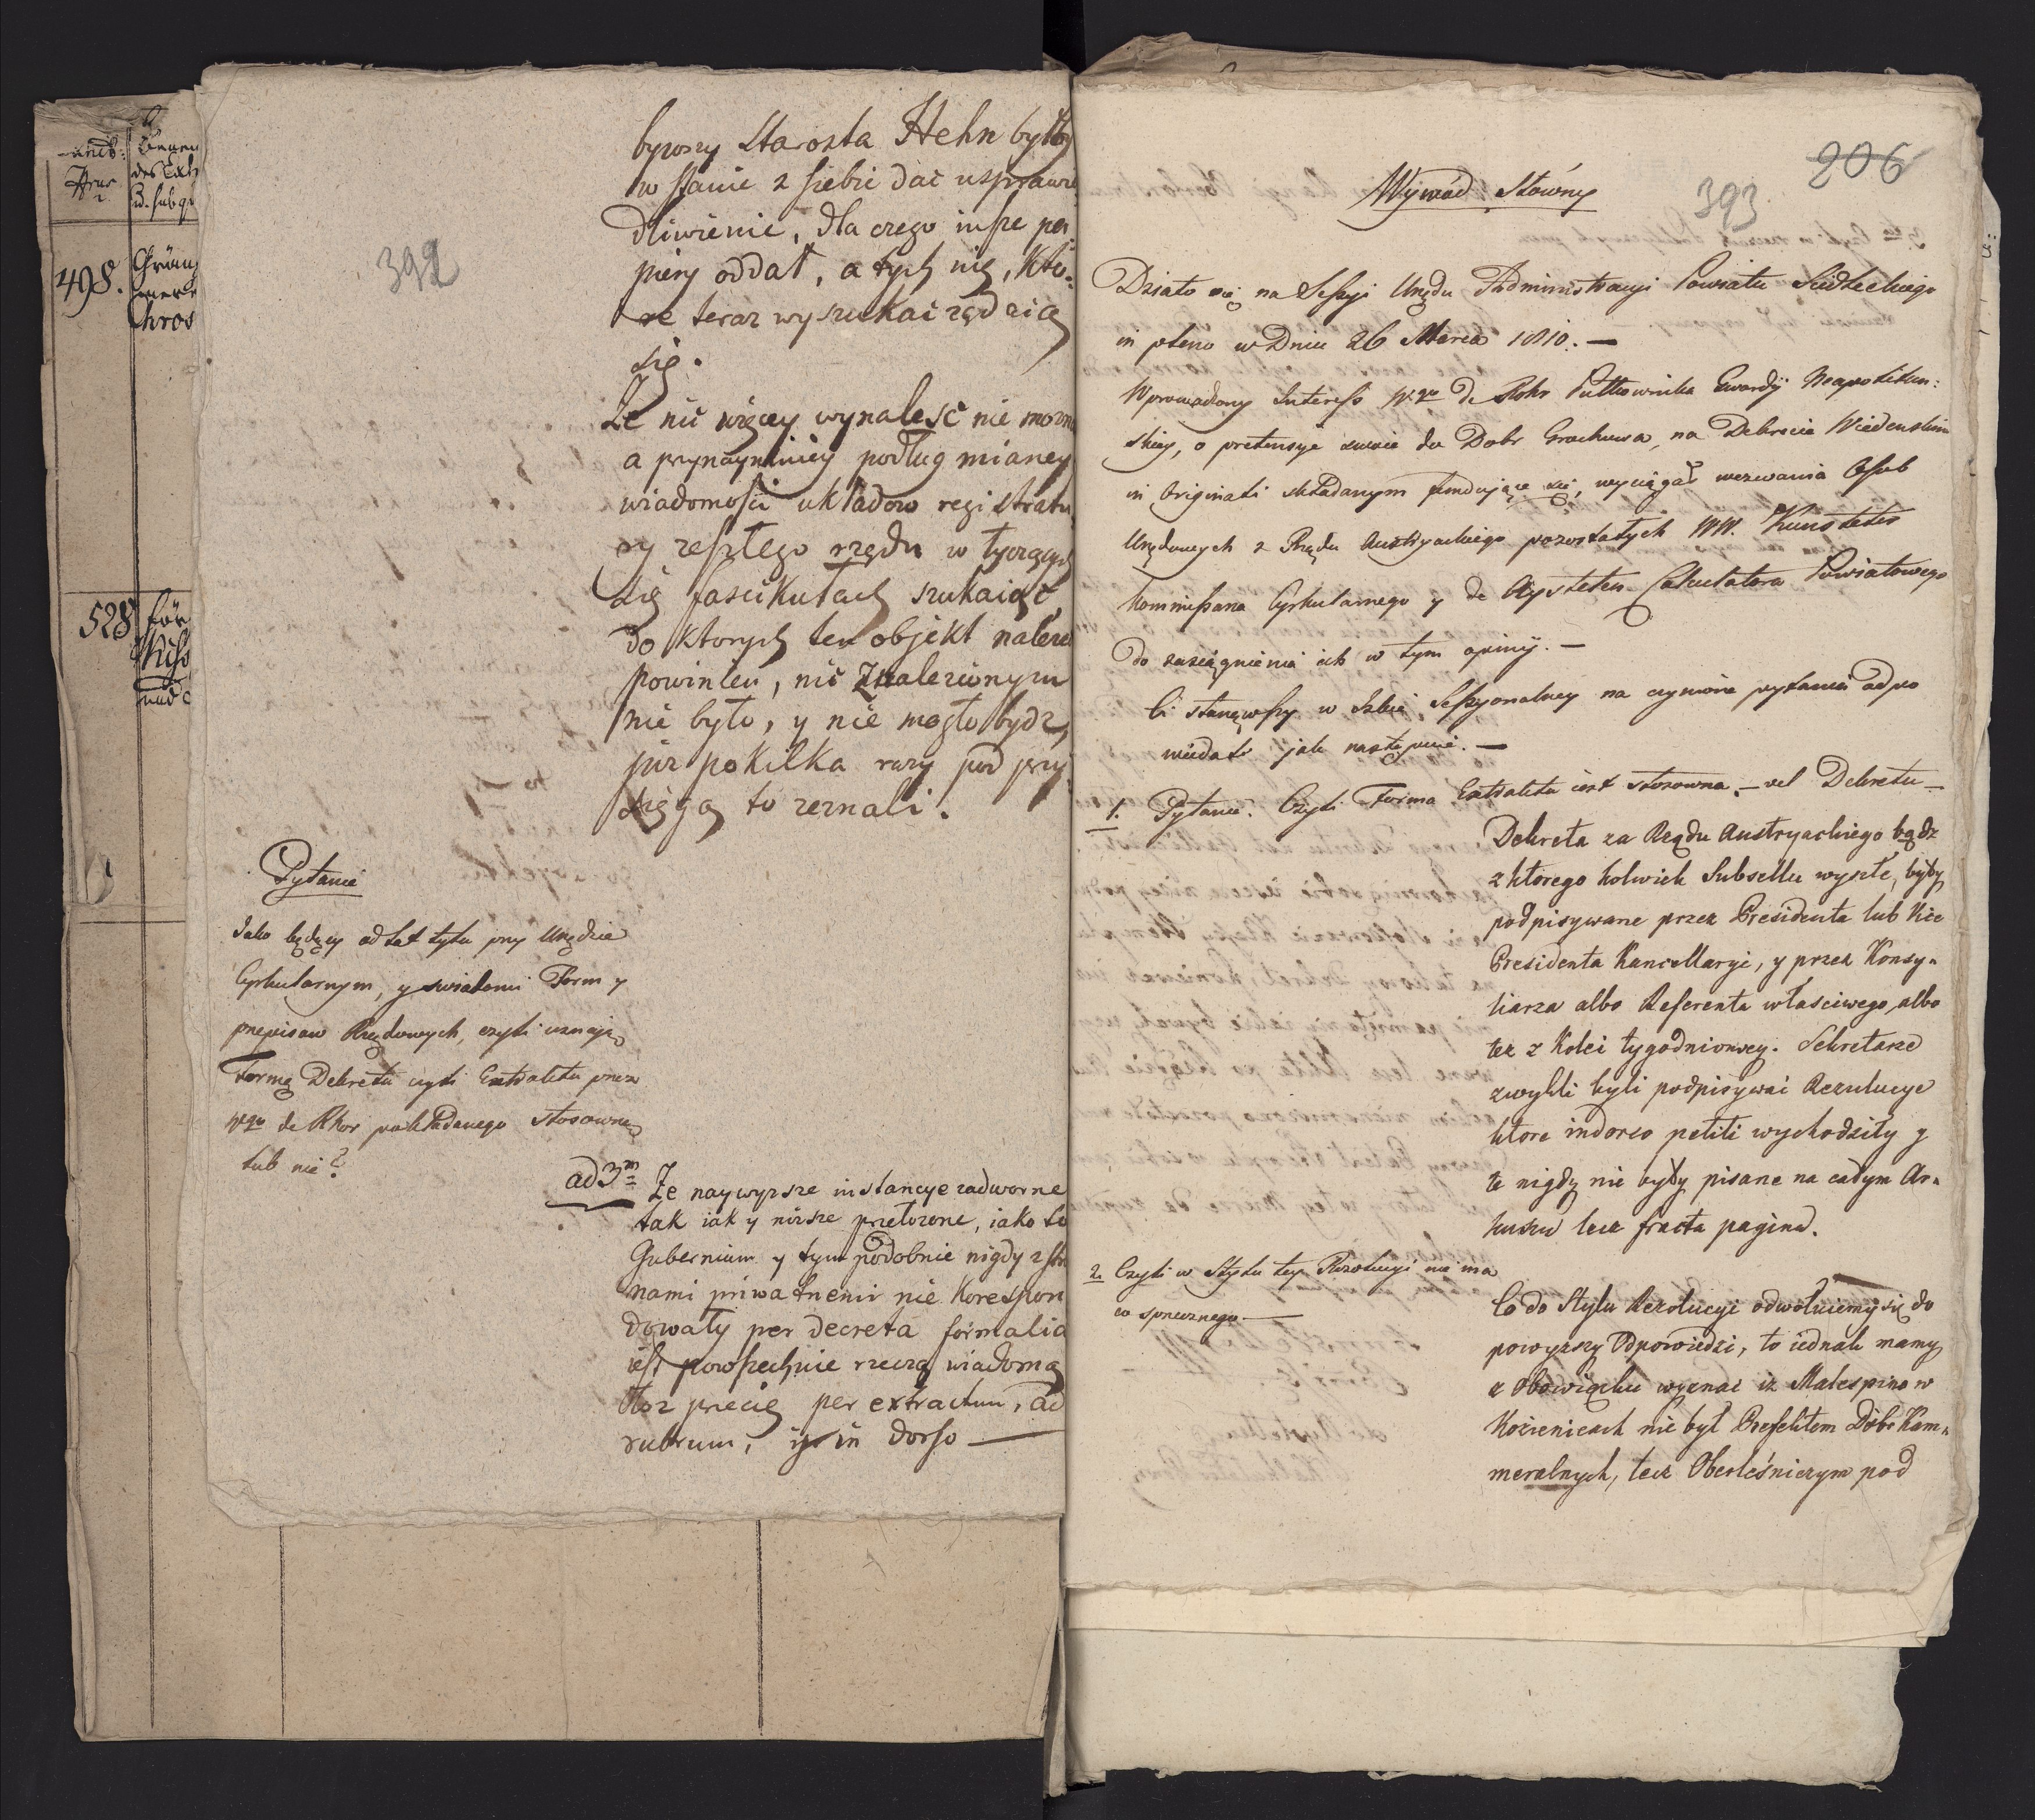 392
bywszy Starosta Hehn byłby
w stanie z siebie dać usprawie
dliwienie, dla czego insze pa
piery oddał, a tych nie, któ-
re teraz wyszukać rządzią
się.
Że nic więcey wynaleść nie można
a przynaymniey podług mianey
wiadomości układow registratu
ry zeszłego rządu w tyczących
się fascikułach szukaiąc,
do ktorych ten objekt należeć
powinien, nic znalezionym
nie było, y nie mogło bydz,
już pokilka razy pod przy
sięgą to zeznali.
Pytanie
Jako będący od lat tylu przy Urzędzie
Cyrkularnym, y świadomi Form y
przepisow Rządowych, czyli uznają
Formę Dekretu czyli Extraktu przez
de Rhor pokładanego stosowną
lub nie?
ad 3m Że naywyzsze instancye nadworne
tak iak y niższe przełożone, iako to
Gubernium y tym podobnie nigdy z stro
nami priwatnemi nie korespon
dowały per decreta formalia
iest powszechnie rzeczą wiadomą
tłoz przecię per extractum, ad
rubrum, y in dorso —
498.
528
206
393
Wywód Słowny
Działo się na Sessyi Urzędu Administracyi Powiatu Siedleckiego
in pleno w Dniu 26 Marca 1810. —
Wprowadzony Interess de Rohr Pułkownika Gwardyi Neapolitań:
skiey, o pretensye swoie do Dobr Grochowa, na Dekrecie Wiedenskim
in Originali składanym fundujące się, wyciągał wezwania Osob
Urzędowych z Rządu Austryackiego pozostałych WW. Kunstetter
Kommissarza Cyrkularnego y de Aystetten Calculatora Powiatowego
do zasiągnienia ich w tym opinij. —
Ci stanąwszy w Izbie Sessyonalney na czynione pytania odpo
wiedali jak następuie. —
1. Pytanie. Czyli Forma Extraktu iest stosowna. — vel Dekretu —
Dekreta za Rządu Austryackiego bądz
z ktorego kolwiek Subsellu wyszłe, były
podpisywane przez Presidenta lub Vice
Presidenta Kancellaryi, y przez Konsy-
liarza albo Referenta właściwego, albo
tez z kolei tygodniowey. Sekretarze
zwykli byli podpisywać Rezulucye
ktore indorso petiti wychodziły y
te nigdy nie były pisane na całym Ar-
kuszu lecz fracta pagina.
2. Czyli w Stylu tey Rezolucyi nie ma
co sprzecznego. —
Co do Stylu Rezolucyi odwołuiemy się do
powyzszy Odpowiedzi, to iednak mamy
z Obowiązku wyznać iz Malespina w
Kozienicach nie był Prefektem Dobr Kam-
meralnych, lecz Oberleśniczym pod